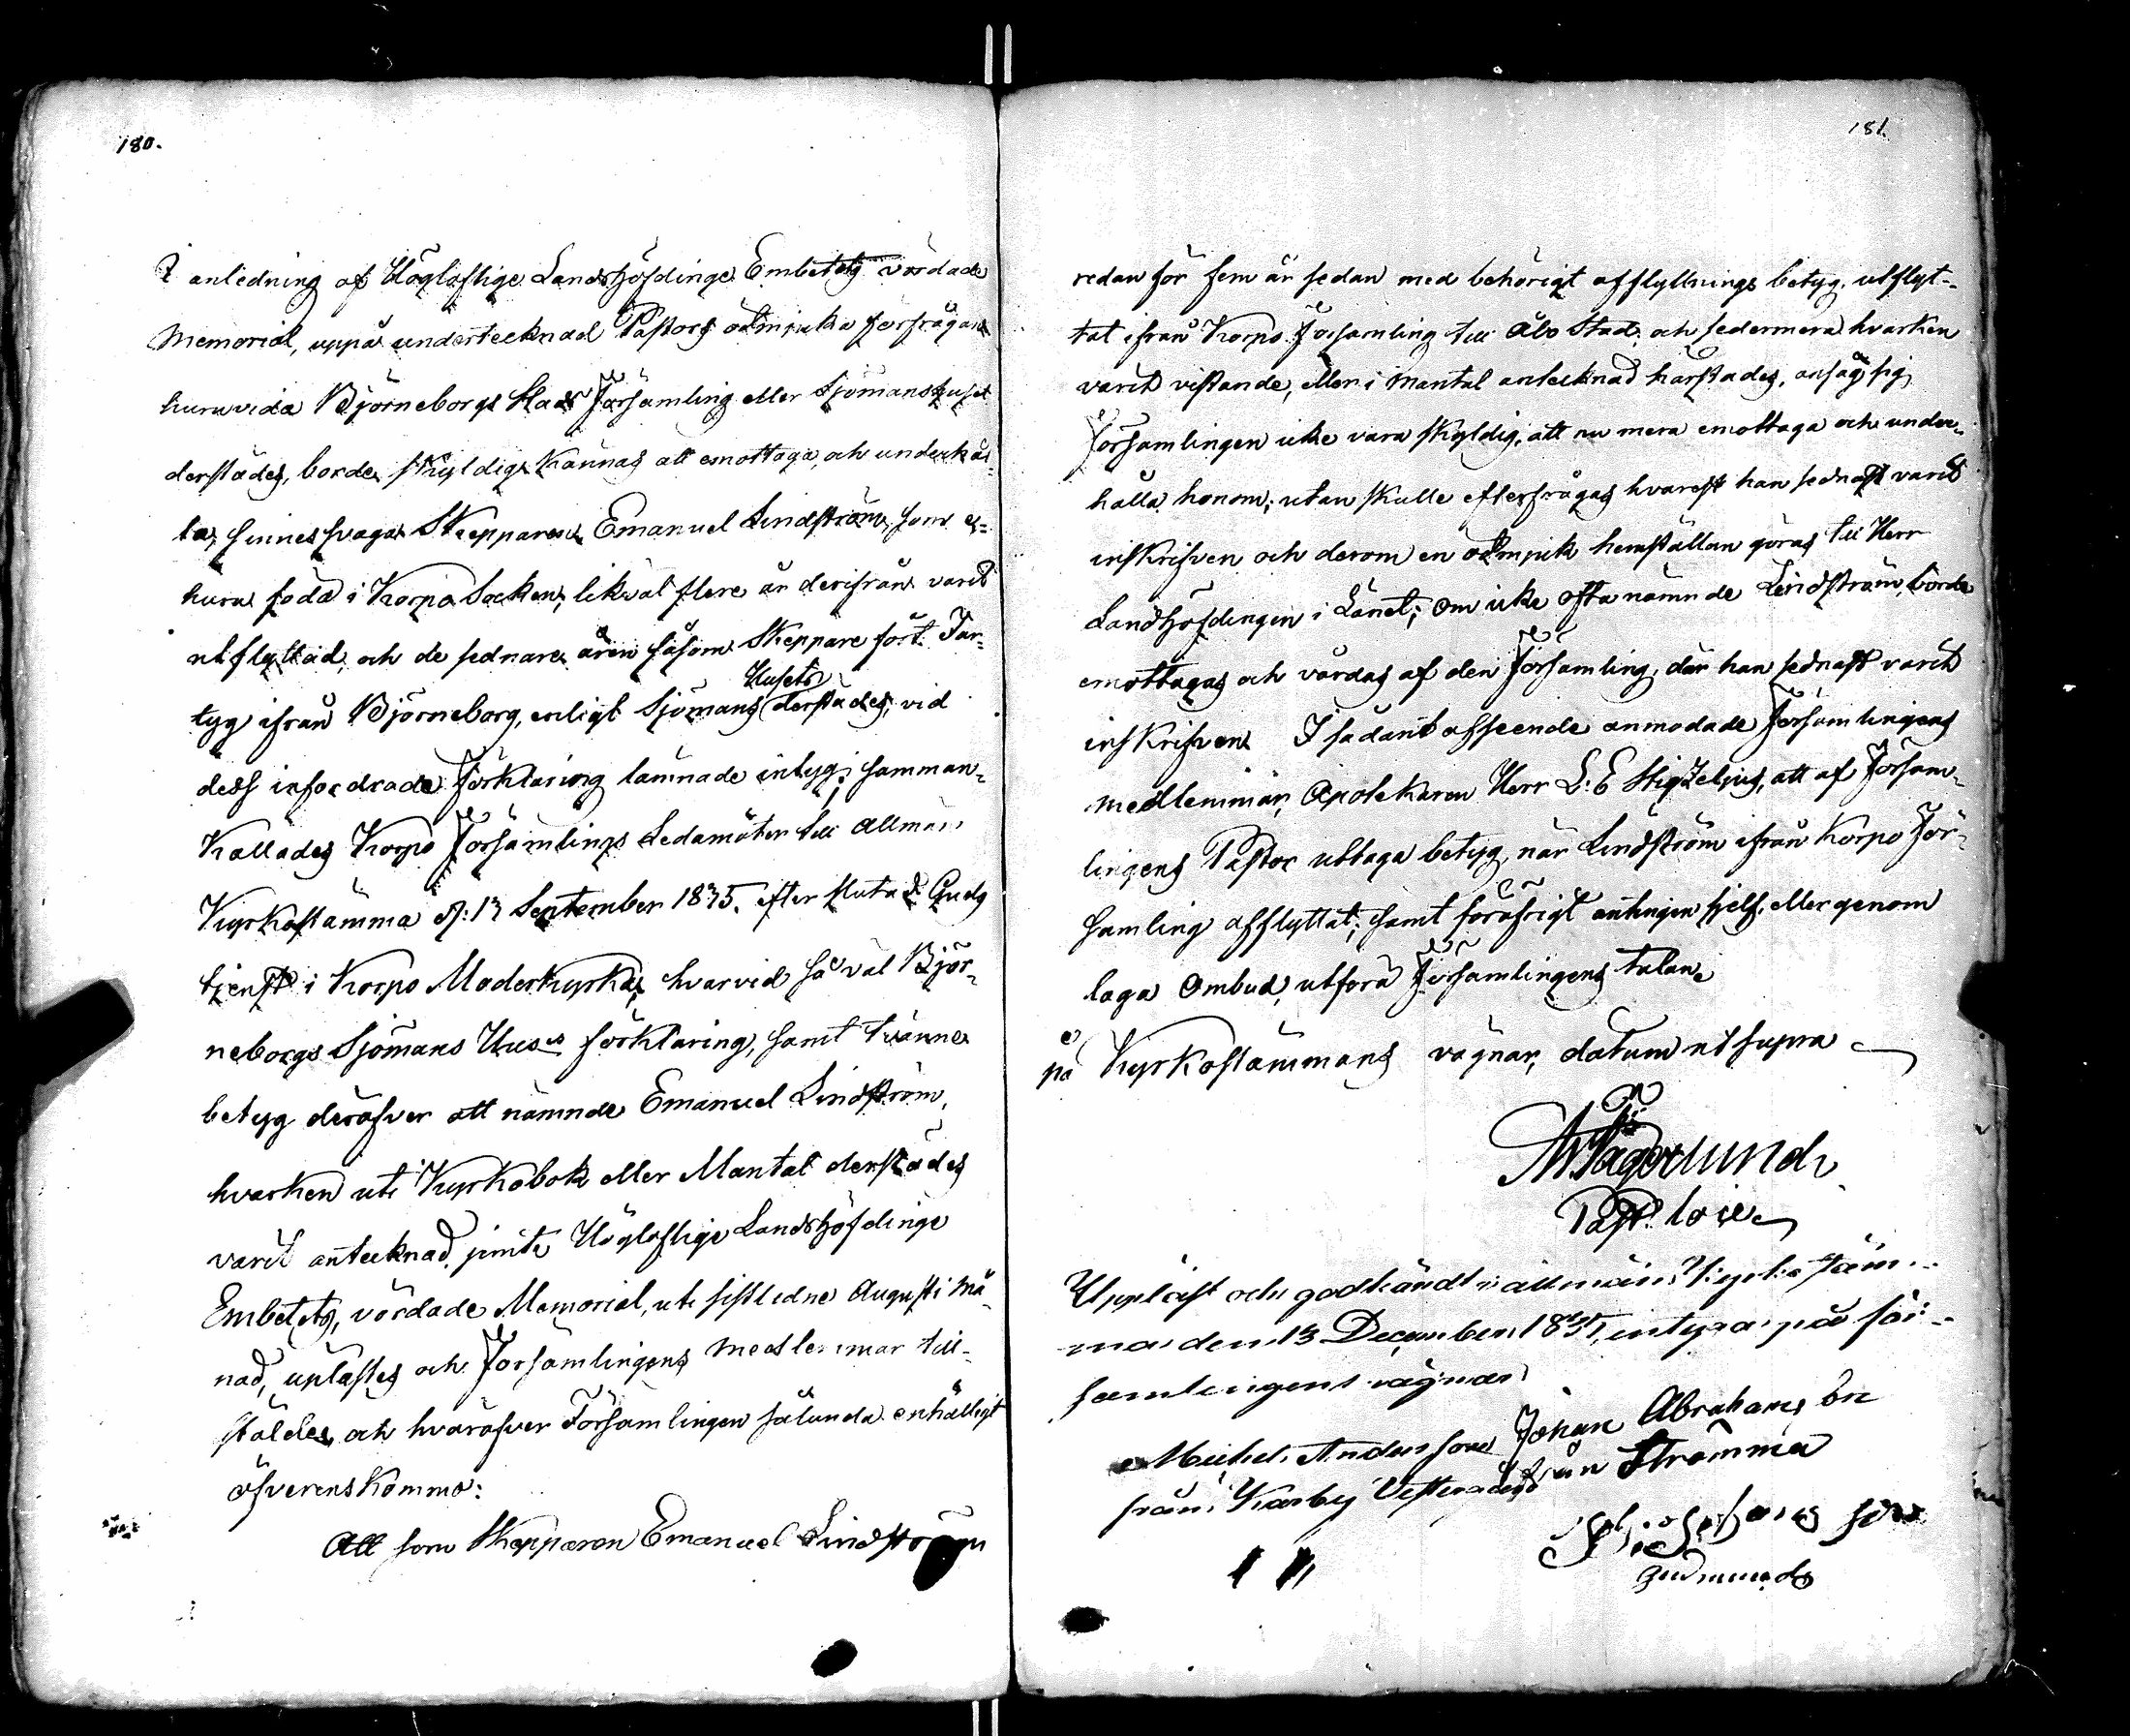 180.
I anledning af Högloflige Landshöfdinge Embetets vördade
Memorial, uppå undertecknad Pastors ödmjuka förfrågan
huruvida Björneborgs Stads Församling eller Sjömanshuset
derstädes, borde skyldige kännas att emottaga, och underhål-
la, sinnessvaga Skepparen Emanuel Lindström, som e-
huru född i Korpo Socken, likväl flere år derifrån varit
utflyttad, och de sednare åren såsom Skeppare fört Far-
tyg ifrån Björneborg, enligt Sjömans Husets derstädes, vid
dess infordrade förklaring lämnade intyg; samman-
kallades Korpo Församlings Ledamöter till allmän
Kyrkostämma d: 13 September 1835. efter slutad Guds
tjenst i Korpo Moderkyrka, hvarvid så väl Björ-
neborgs Sjömans Huses förklaring, samt tvänne
betyg deröfver att nämnde Emanuel Lindström,
hvarken uti Kyrkobok eller Mantal derstädes
varit antecknad, jämte Högloflige Landshöfdinge
Embetets, vördade Memorial, uti sistledne Augusti må-
nad, uplästes och Församlingens medlemmar till-
stäldes, och hvaröfver Församlingen sålunda enhälligt
öfverenskommo:
Att som Skepparen Emanuel Lindström
181.
redan för fem år sedan med behörigt afflyttnings betyg, utflyt-
tat ifrån Korpo Församling till Åbo Stad, och sedermera hvarken
varit vistande, eller i Mantal antecknad härstädes, ansåg sig
Församlingen icke vara skyldig, att nu mera emottaga och under-
hålla honom; utan skulle efterfrågas hvarest han sednast varit
inskrifven och derom en ödmjuk hemställan göras till Herr
Landshöfdingen i Länet; om icke ofta nämnde Lindström, borde
emottagas och vårdas af den Församling, där han sednast varit
inskrifven. I sådant afseende anmodade Församlingens
medlemmar, Apotekaren Herr L: E Stigzelius, att af Försam-
lingens Pastor uttaga betyg, när Lindström ifrån Korpo För-
samling afflyttat; samt föröfrigt antingen sjelf, eller genom
laga Ombud, utföra Församlingens talan.
på Kyrkostämmans vägnar, datum ut supra
Past. loci
Uppläst och godkändt i allmän Kyrkostäm-
ma den 13 December 1835, intyga på för-
samlingens vägnar
Michel Andersson Johan Abrahamsson
från Korby Vestergård från Strömma
son
Gudmunds